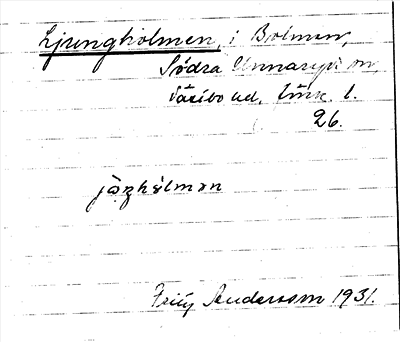 Ljungholmen, i Bolmen,
Södra Unnaryd sn,
Västbo hd, Jönk. l.
26.
jọŋhólmən
Fritz Andersson 1931.